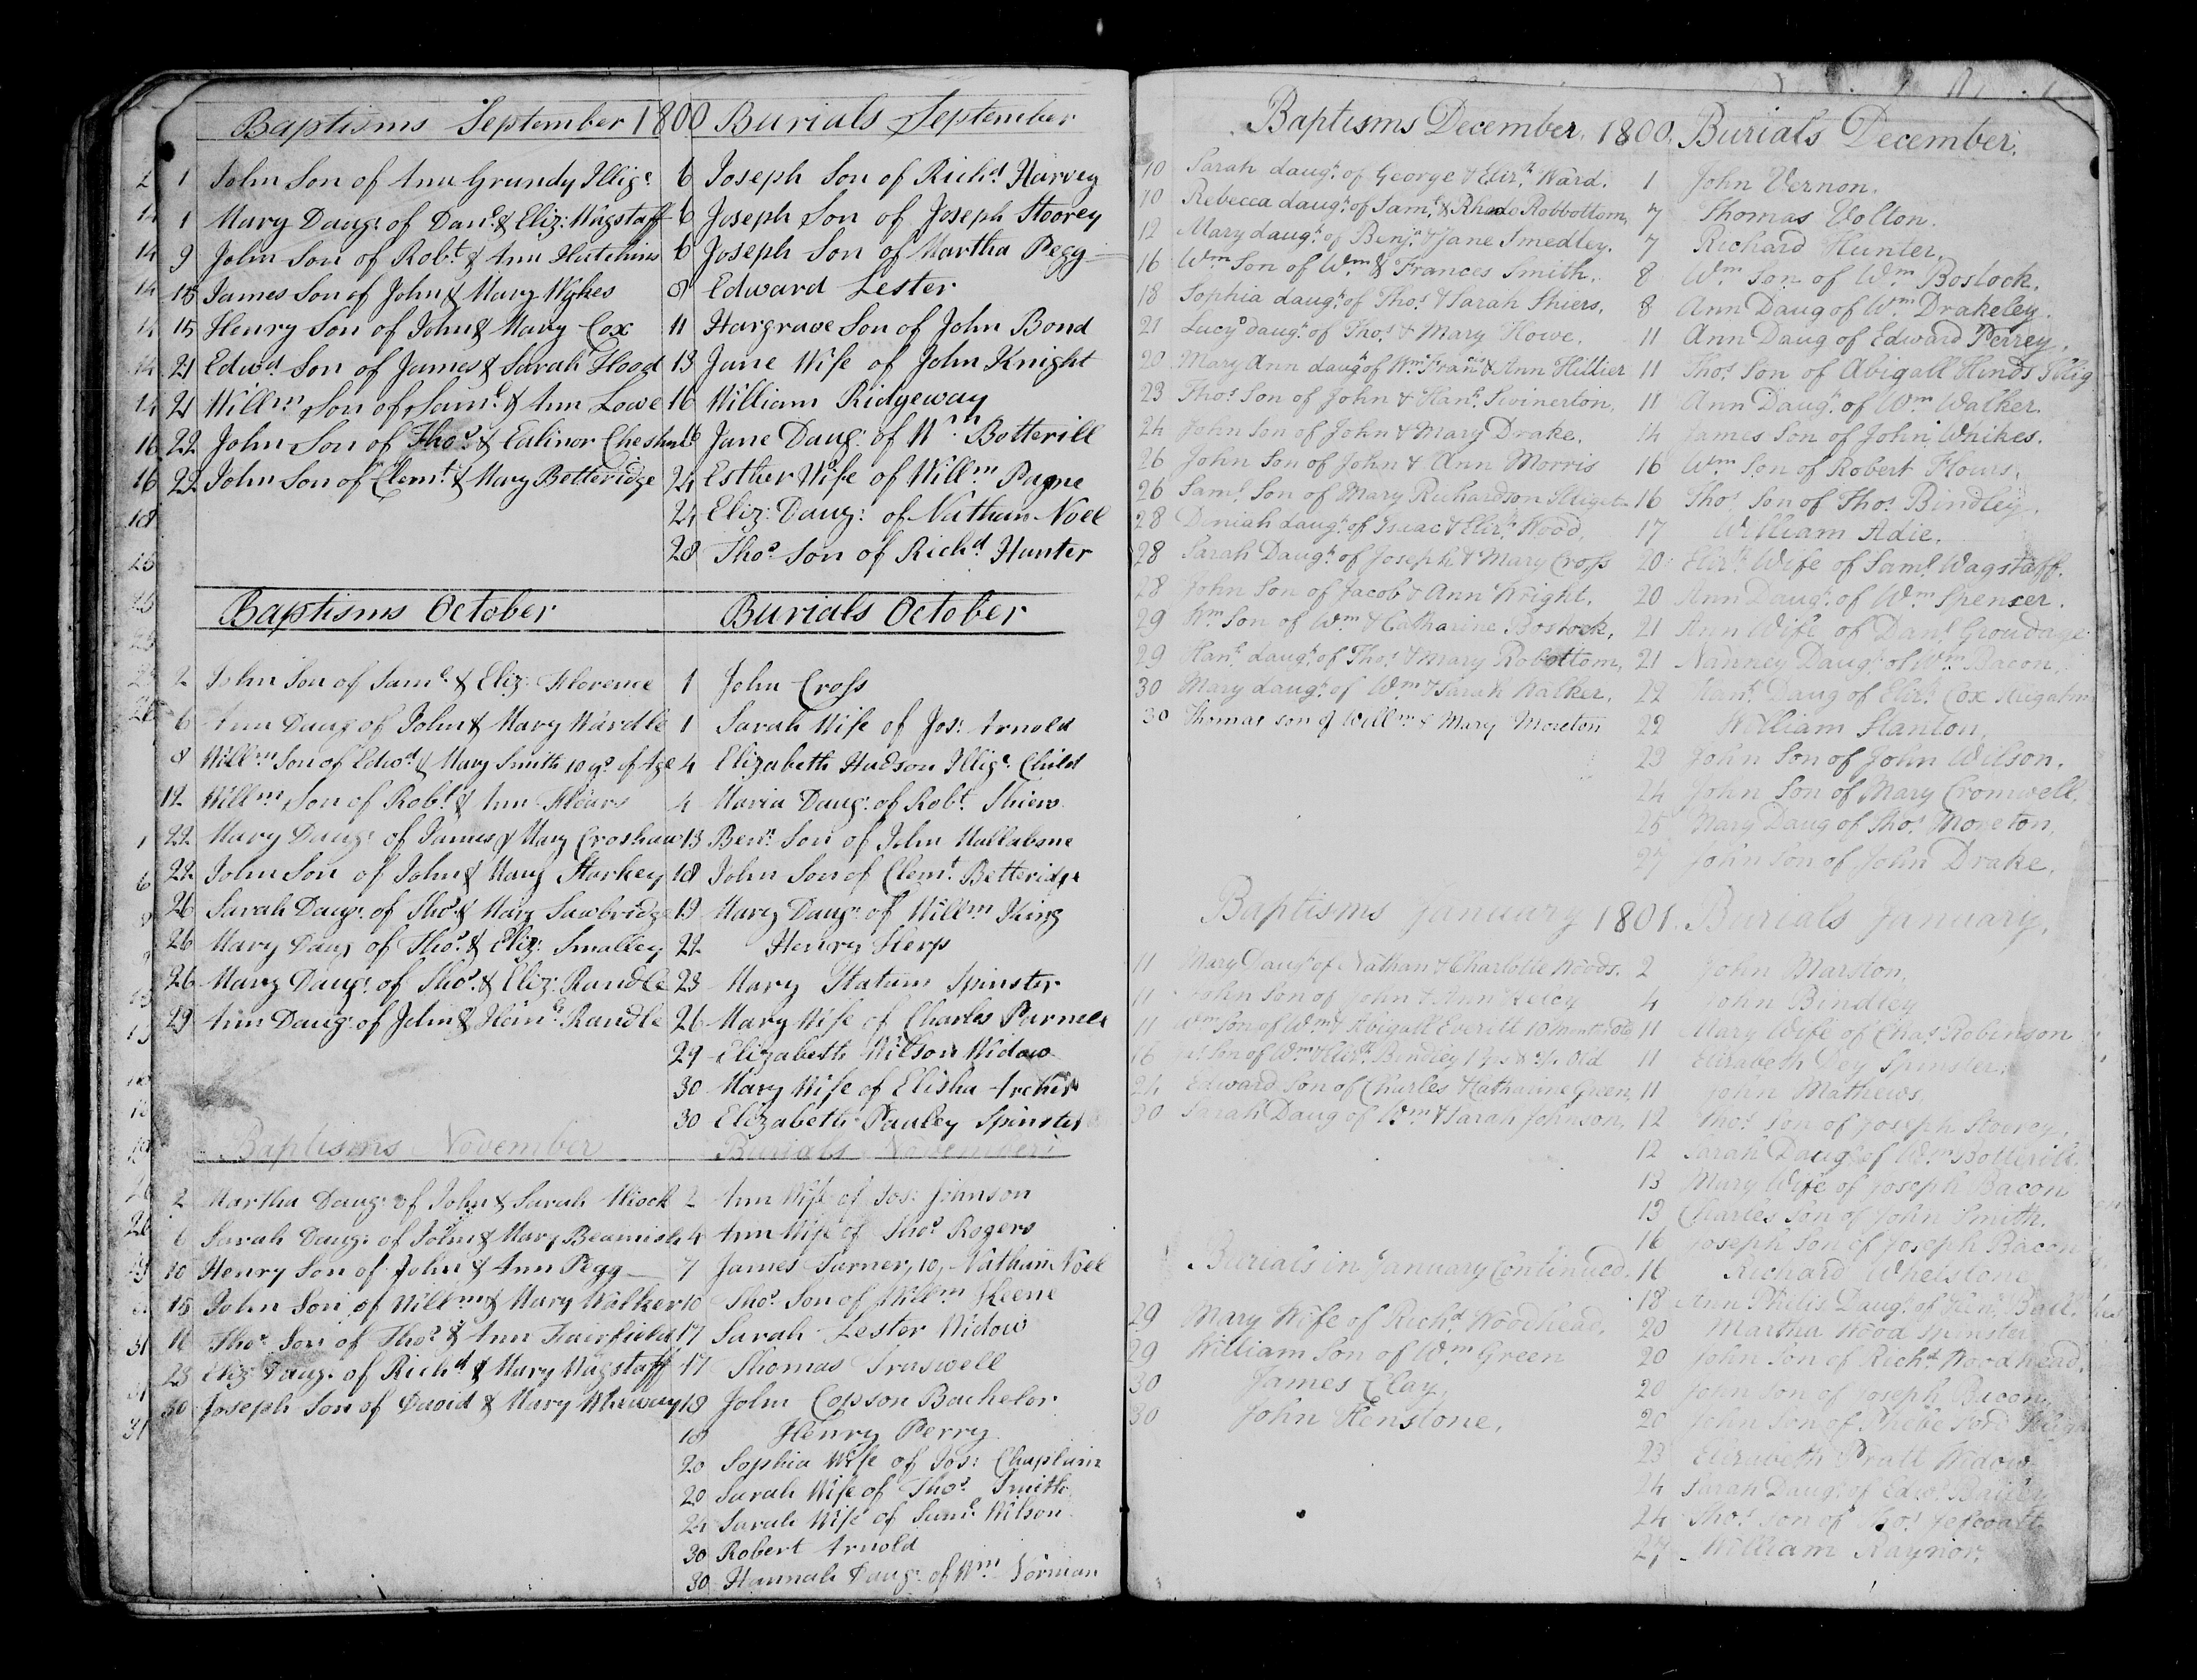 Baptisms September 1800 Burials September
1 John Son of Ann Grundy Illige.
1 Mary Daugr. of Danl. & Eliz: Wagstaff
9 John Son of Robt. & Ann Hutchins
15 James Son of John & Mary Wykes
15 Henry Son of John & Mary Cox
21 Edwd. Son of James & Sarah Hood
21 Willm. Son of Saml. & Ann Lowe
22 John Son of Thos. & Ealinor
22 John Son of Clemt. & Mary Betteridge
6 Joseph Son of Richd. Harvey
6 Joseph Son of Joseph Stoorey
6 Joseph Son of Martha Pegg
8 Edward Lester
11 Hargrave Son of John Bond
13 Jane Wife of John Knight
16 William Ridgeway
Jane Daugr. of Wm. Botterill
24 Esther Wife of Willm. Payne
24 Eliz: Daugr: of Nathan Noel
28 Thos. Son of Richd. Hunter
Baptisms October
2 John Son of Saml. & Eliz: Florence
6 Ann Daugr. of John & Mary Wardle
8 Willm. Son of Edwd. & Mary Smith 10 ys. of Age
12 Willm. Son of Robt. & Ann
22 Mary Daugr. of James & Mary Croshaw
22 John Son of John & Mary Starkey
26 Sarah Daugr. of Thos. & Mary Sawbridge
26 Mary Daugr. of Thos. & Eliz: Smalley
26 Mary Daugr. of Thos. & Eliz: Randle
29 Ann Daugr. of John & Randle
Burials October
1 John Cross
1 Sarah Wife of Jos: Arnold
4 Elizabeth Hudson Illige. Child
4 Maria Daugr. of Robt. Shiers
13 Benn. Son of John Mallabone
18 John Son of Clemt. Betteridge
19 Mary Daugr. of Willm. King
22 Henry
23 Mary Statum Spinster
26 Mary Wife of Charles Purnell
29 Elizabeth Wilson Widow
30 Mary Wife of Elisha Archer
30 Elizabeth Pauley Spinster
Baptisms November
2 Martha Daugr. of John & Sarah
6 Sarah Daugr. of John & Mary Beamish
10 Henry Son of John & Ann Pegg
15 John Son of Willm. & Mary Walker
16 Thos. Son of Thos. & Ann Fairfield
23 Eliz: Daugr. of Richd. & Mary Wagstaff
30 Joseph Son of David & Mary
Burials November
2 Ann Wife of Jos: Johnson
4 Ann Wife of Thos. Rogers
7 James Turner, 10, Nathan Noel
10 Thos. Son of Willm. Keene
17 Sarah Lester Widow
17 Thomas Traswell
18 John Copson Bachelor
18 Henry Perry
20 Sophia Wife of Jos: Chaplain
20 Sarah Wife of Thos. Smith
24 Sarah Wife of Saml. Wilson
30 Robert Arnold
30 Hannah Daugr. of Wm. Norman
Baptisms December, 1800. Burials December.
10 Sarah daugh. of George & Elizth. Ward.
10 Rebecca daugh. of Saml. & Rhoda Robbottom,
12 Mary daugh. of Benjn. & Jane Smedley.
16 Wm. Son of Wm. & Frances Smith.
18 Sophia daugh. of Thos. & Sarah Shiers,
21 Lucy daugh. of Thos. & Mary Howe.
20 Mary Ann daugh. of Wm. Fran. & Ann Hillier
23 Thos. Son of John & Hanh. Swinerton,
24 John Son of John & Mary Drake.
26 John Son of John & Ann Morris
26 Saml. Son of Mary Richardson Illigat.
28 Deniah daugh. of Isaac & Elizth. Wood,
28 Sarah Daugh. of Joseph & Mary Cross
28 John Son of Jacob & Ann Wright.
29 Wm. Son of Wm. & Catharine Bostock,
29 Hanh. daugh. of Thos. & Mary Robottom,
30 Mary daugh. of Wm. & Sarah Walker.
30 Thomas son of Willm. & Mary Moreton
1 John Vernon.
7 Thomas Volton.
7 Richard Hunter.
8 Wm. Son of Wm. Bostock.
8 Ann Daug of Wm. Drakeley.
11 Ann Daug of Edward Perrey.
11 Thos. Son of Abigall Hinds Illig
11 Ann Daugh. of Wm. Walker.
14 James Son of John Whikes.
16 Wm. Son of Robert Flours.
16 Thos. Son of Thos. Bindley.
17 William Adie.
20 Elizth. Wife of Saml. Wagstaff.
20 Ann Daugh. of Wm. Spencer.
21 Ann Wife of Danl. Groudage
21 Nanney Daugh. of Wm. Bacon.
22 Hanh. Daug of Elizh. Cox
22 William Stanton,
23 John Son of John Wilson.
24 John Son of Mary Cromwell,
25 Mary Daug of Thos. Moreton,
27 John Son of John Drake.
Baptisms January 1801. Burials January,
11 Mary Daugh. of Nathan & Charlotte Woods.
11 John Son of John & Ann
11 Wm. Son of Wm. & Abigall Everitt 10 months Old
16 Son of Wm. & Elizth. Bindley Old
24 Edward Son of Charles & Catharine Green,
30 Sarah Daug of Wm. & Sarah Johnson,
2 John Marston,
4 John Bindley
11 Mary Wife of Chas. Robinson
11 Elizabeth Dey Spinster.
11 John Mathews,
12 Thos. Son of Joseph Stoorey.
12 Sarah Daugh. of Wm. Botterill.
13 Mary Wife of Joseph Bacon
13 Charles Son of John Smith.
16 Joseph Son of Joseph Bacon
16 Richard Whetstone
18 Ann Philis Daugh. of Ball.
20 Martha Wood Spinster
20 John Son of Richd. Woodhead,
20 John Son of Joseph Bacon,
20 John Son of Phebe Ford
23 Elizabeth Pratt Widow
24 Sarah Daugh. of Edwd. Bailey
24 Thos. Son of Thos.
27 William Raynor,
Burials in January Continued.
29 Mary Wife of Richd. Woodhead,
29 William Son of Wm. Green
30 James Clay,
30 John Henstone,